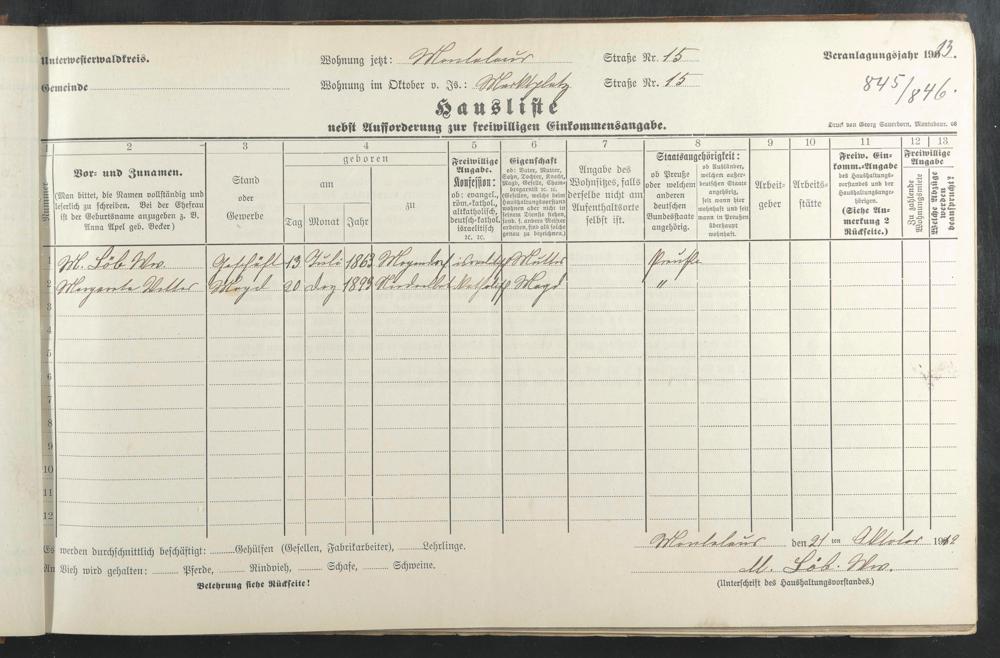 Unterwesterwaldkreis.
Wohnung jetzt: Montabaur Straße Nr. 15
Veranlagungsjahr 1913.
Gemeinde
Wohnung im Oktober v. Js.: Marktplatz Straße Nr. 15
845/846.
Hausliste
nebst Aufforderung zur freiwilligen Einkommensangabe.
Druck von Georg Sauerborn, Montabaur.
1 2 3 4 5 6 7 8 9 10 11 12 13
Nummer
Vor- und Zunamen.
(Man bittet, die Namen vollständig und
leserlich zu schreiben. Bei der Ehefrau
ist der Geburtsname anzugeben z. B.
Anna Apel geb. Becker)
Stand
oder
Gewerbe
geboren
am
zu
Tag Monat Jahr
Freiwillige
Angabe.
Konfession:
ob: evangel.,
röm.-kathol.,
altkatholisch,
deutsch-kathol.
israelitisch
ec. ec.
Eigenschaft
ob: Vater, Mutter,
Sohn, Tochter, Knecht,
Magd, Geselle,
Angabe des
Wohnsitzes, falls
derselbe nicht am
Aufenthaltsorte
selbst ist.
Staatsangehörigkeit:
ob Preuße
oder welchem
anderen
deutschen
Bundesstaate
angehörig.
ob Ausländer,
welchem außer-
deutschen Staate
angehörig,
seit wann hier
wohnhaft und seit
wann in Preußen
überhaupt
wohnhaft.
Arbeit-
geber
Arbeits-
stätte
Freiw. Ein-
komm.-Angabe
des Haushaltungs-
vorstandes und der
Haushaltungsange-
hörigen.
(Siehe An-
merkung 2
Rückseite.)
Freiwillige
Angabe
Zu zahlende
Wohnungsmiete
Welche Abzüge
werden
beansprucht?
1 M. Löb Ww. Geschäft 13 Juli 1863 Mogendorf israelitisch Mutter Preuße
2 Margarete Magd 20 Dez 1895 katholisch Magd "
3
4
5
6
7
8
9
10
11
12
Es werden durchschnittlich beschäftigt: Gehülfen (Gesellen, Fabrikarbeiter), Lehrlinge.
Montabaur den 21 ten Oktober 1912
An Vieh wird gehalten: Pferde, Rindvieh, Schafe, Schweine.
M. Löb. Ww.
Belehrung siehe Rückseite!
(Unterschrift des Haushaltungsvorstandes.)